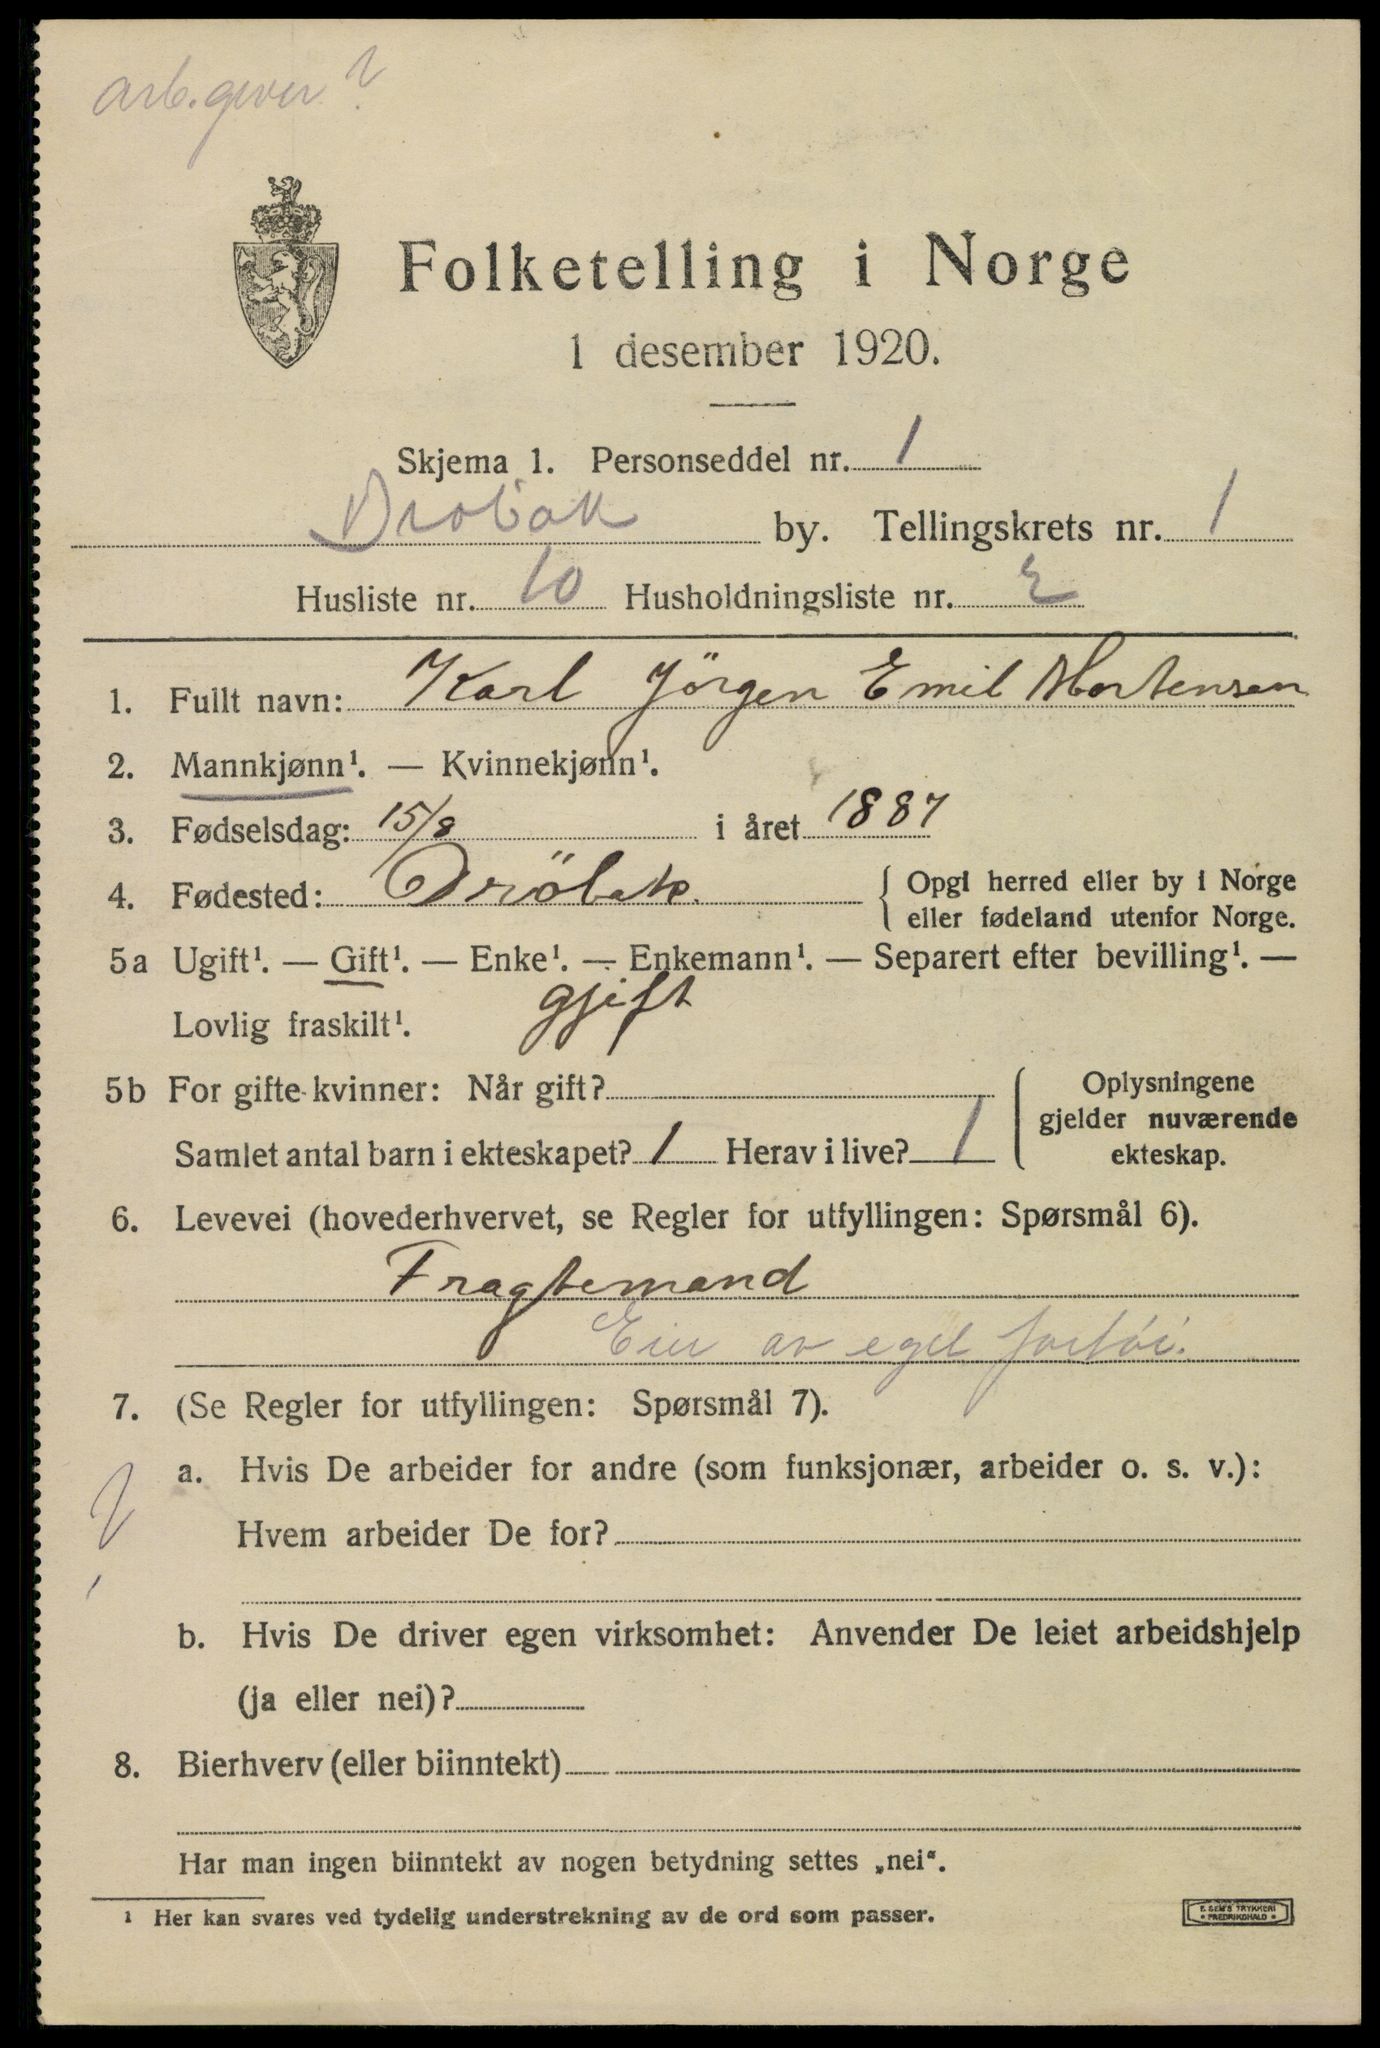 arb.giver?
Folketelling i Norge
1 desember 1920.
Skjema 1. Personseddel nr. 1
Drobak by. Tellingskrets nr. 1
Husliste nr. 10 Husholdningsliste nr. 2
1. Fullt navn: Karl Jörgen Emil Mortensen
2. Mannkjønn¹. — Kvinnekjønn¹.
3. Fødselsdag: 15/8 i året 1887
4. Fødested: Dröbak. { Opgi herred eller by i Norge
eller fødeland utenfor Norge.
5a Ugift¹. — Gift¹. — Enke¹. — Enkemann¹. — Separert efter bevilling¹. —
Lovlig fraskilt¹. gjift
5b For gifte kvinner: Når gift?
Samlet antal barn i ekteskapet? 1 Herav i live? 1
Oplysningene
gjelder nuværende
ekteskap.
6. Levevei (hovederhvervet, se Regler for utfyllingen: Spørsmål 6).
Fragtemand
Eier av eget fartöi.
7. (Se Regler for utfyllingen: Spørsmål 7).
a. Hvis De arbeider for andre (som funksjonær, arbeider o. s. v.):
? Hvem arbeider De for?
b. Hvis De driver egen virksomhet: Anvender De leiet arbeidshjelp
(ja eller nei)?
8. Bierhverv (eller biinntekt)
Har man ingen biinntekt av nogen betydning settes „nei“.
¹ Her kan svares ved tydelig understrekning av de ord som passer.
E. SEM'S TRYKKERI
• FREDRIKSHALD •